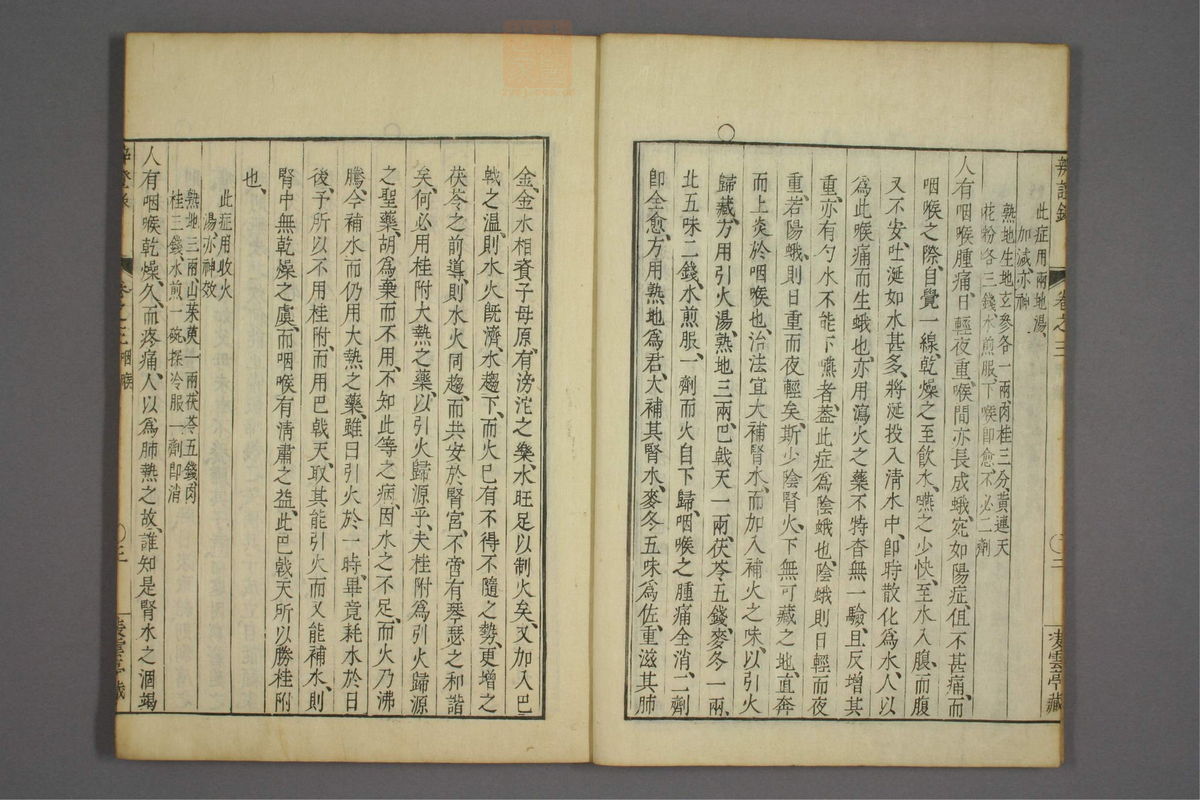 辨證錄 卷之三 〇二 凌雲亭藏
此症用兩地湯
加減亦神
熟地生地玄參各一兩肉桂三分黃連天
花粉各三錢水煎服下喉卽愈不必二劑
人有咽喉腫痛日輕夜重喉間亦長成蛾宛如陽症但不甚痛而
咽喉之際自覺一線乾燥之至飲水嚥之少快至水入腹而腹
又不安吐涎如水甚多將涎投入淸水中卽時散化爲水人以
爲此喉痛而生蛾也亦用瀉火之藥不特杳無一驗且反增其
重亦有勺水不能下嚥者蓋此症爲陰蛾也陰蛾則日輕而夜
重若陽蛾則日重而夜輕矣斯少陰腎火下無可藏之地直奔
而上炎於咽喉也治法宜大補腎水而加入補火之味以引火
歸藏方用引火湯熟地三兩巴戟天一兩茯苓五錢麥冬一兩
北五味二錢水煎服一劑而火自下歸咽喉之腫痛全消二劑
卽全愈方用熟地爲君大補其腎水麥冬五味爲佐重滋其肺
金金水相資子母原有滂沱之樂水旺足以制火矣又加入巴
戟之溫則水火旣濟水趨下而火已有不得不隨之勢更增之
茯苓之前導則水火同趨而共安於腎宮不啻有琴瑟之和諧
矣何必用桂附大熱之藥以引火歸源乎夫桂附爲引火歸源
之聖藥胡爲棄而不用不知此等之病因水之不足而火乃沸
騰今補水而仍用大熱之藥雖曰引火於一時畢竟耗水於日
後予所以不用桂附而用巴戟天取其能引火而又能補水則
腎中無乾燥之虞而咽喉有淸肅之益此巴戟天所以勝桂附
也
此症用收火
湯亦神效
熟地三兩山茱萸一兩茯苓五錢肉
桂三錢水煎一碗探冷服一劑卽消
人有咽喉乾燥久而疼痛人以爲肺熱之故誰知是腎水之涸竭
辨證錄 卷之三 咽喉 〇三 凌雲亭藏